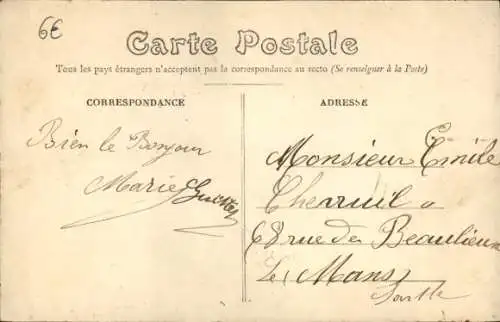 6€
Carte Postale
Tous les pays étrangers n'acceptent pas la correspondance au recto (Se renseigner à la Poste)
CORRESPONDANCE
Bien le Bonjour
Marie
ADRESSE
Monsieur Emile
Chevruil a
68 rue de Beaulieu
Le Mans
Sarthe